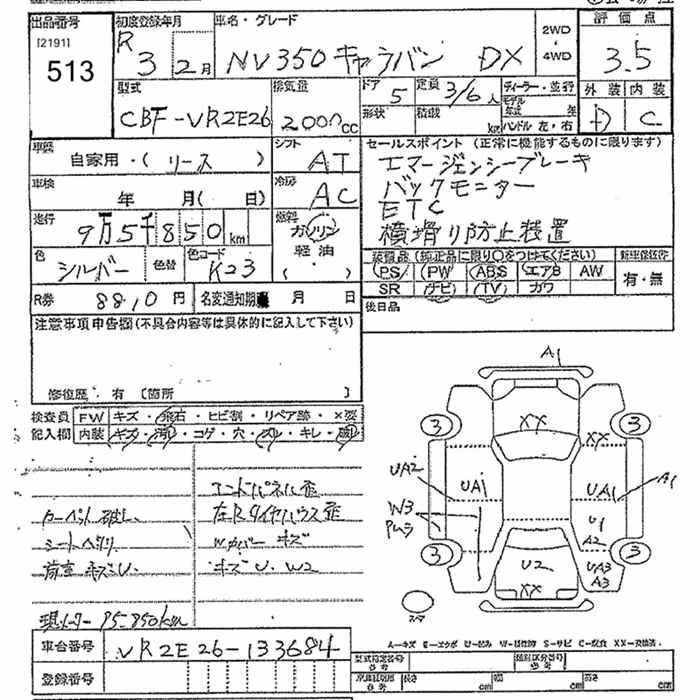 出品番号 初度登録年月 車名・グレード 評価点
[2191] 513
R3 2月 NV350キャラバン DX 2WD・4WD 3.5
型式 排気量 ドア 定員 ディーラー・並行 外装 内装
CBF-VR2E26 2000cc 5 3/6人 モデル年式 年 D C
形状 積載 kg ハンドル 左・右
車歴 自家用・(リース) シフト AT
セールスポイント (正常に機能するものに限ります)
エマージェンシーブレーキ
バックモニター
ETC
横滑り防止装置
車検 年 月( 日) 冷房 AC
走行 9万5千850km 燃料 ガソリン 軽油 ( )
色 シルバー 色替 色コード K23
装備品 (純正品に限り○をつけてください) 新車保証書
PS PW ABS エアB AW 有・無
SR ナビ TV カワ
R券 8810円 名変通知期 月 日
後日品
注意事項申告欄(不具合内容等は具体的に記入して下さい)
修復歴・有 [箇所 ]
検査員 FW キズ・飛石・ヒビ割・リペア跡・×要
記入欄 内装 キズ・汚れ・コゲ・穴・スレ・キレ・破れ
エンドパネル歪
カーペット破れ 左Rタイヤハウス歪
シートヘタリ Wカバー キズ
荷室 キズU キズ U W2
現メーター 95-850km
車台番号 VR2E26-133684
登録番号
A1
3 XX XX 3
UA2 UA1 UA1 A1
W3 U1
A2
3 U2 UA3 3
XX A3
スマ
A-キズ E-エクボ U-凹み W-補修跡 S-サビ C-腐食 XX-交換済
型式指定番号 類別区分番号
長さ cm 幅 cm 高さ cm